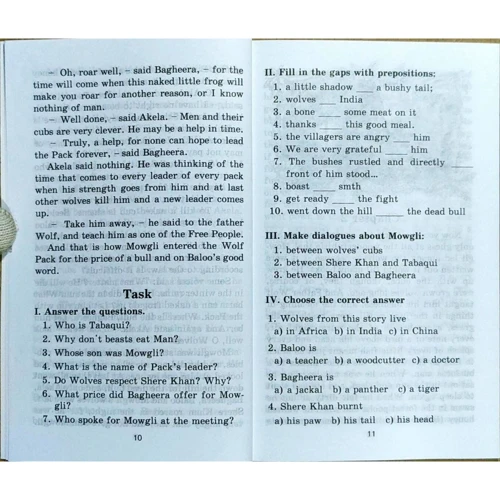 – Oh, roar well, – said Bagheera, – for the
time will come when this naked little frog will
make you roar for another reason, or I know
nothing of man.
– Well done, – said Akela. – Men and their
cubs are very clever. He may be a help in time.
– Truly, a help, for none can hope to lead
the Pack forever, – said Bagheera.
Akela said nothing. He was thinking of the
time that comes to every leader of every pack
when his strength goes from him and at last
other wolves kill him and a new leader comes
up.
– Take him away, – he said to the father
Wolf, and teach him as one of the Free People.
And that is how Mowgli entered the Wolf
Pack for the price of a bull and on Baloo's good
word.
Task
I. Answer the questions.
1. Who is Tabaqui?
2. Why don't beasts eat Man?
3. Whose son was Mowgli?
4. What is the name of Pack's leader?
5. Do Wolves respect Shere Khan? Why?
6. What price did Bagheera offer for Mow-
gli?
7. Who spoke for Mowgli at the meeting?
10
II. Fill in the gaps with prepositions:
1. a little shadow ___ a bushy tail;
2. wolves ___ India
3. a bone ___ some meat on it
4. thanks ___ this good meal.
5. the villagers are angry ___ him
6. We are very grateful ___ him
7. The bushes rustled and directly ___
front of him stood...
8. boast ___ smth
9. get ready ___ the fight
10. went down the hill ___ the dead bull
III. Make dialogues about Mowgli:
1. between wolves' cubs
2. between Shere Khan and Tabaqui
3. between Baloo and Bagheera
IV. Choose the correct answer
1. Wolves from this story live
a) in Africa b) in India c) in China
2. Baloo is
a) a teacher b) a woodcutter c) a doctor
3. Bagheera is
a) a jackal b) a panther c) a tiger
4. Shere Khan burnt
a) his paw b) his tail c) his head
11